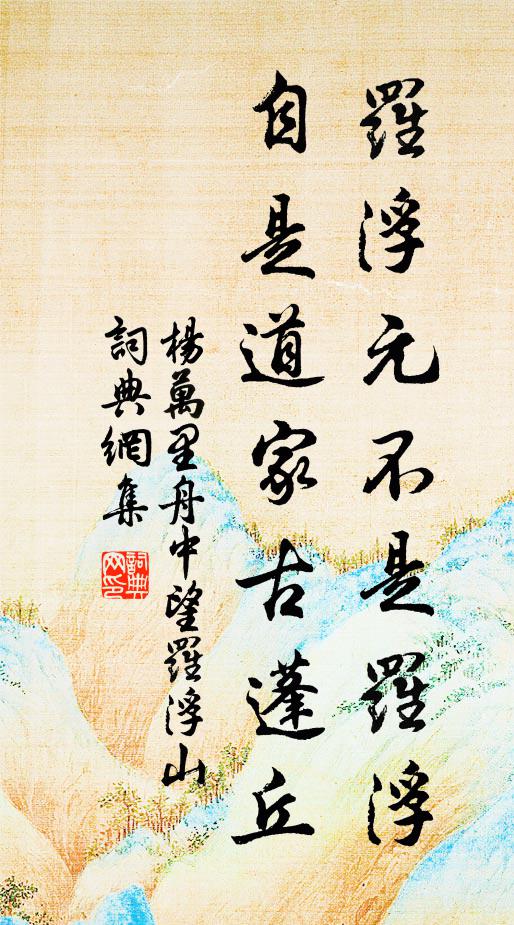 羅浮元不是羅浮
自是道家古蓬丘
楊萬里舟中望羅浮山
詞典網集
詞典网印